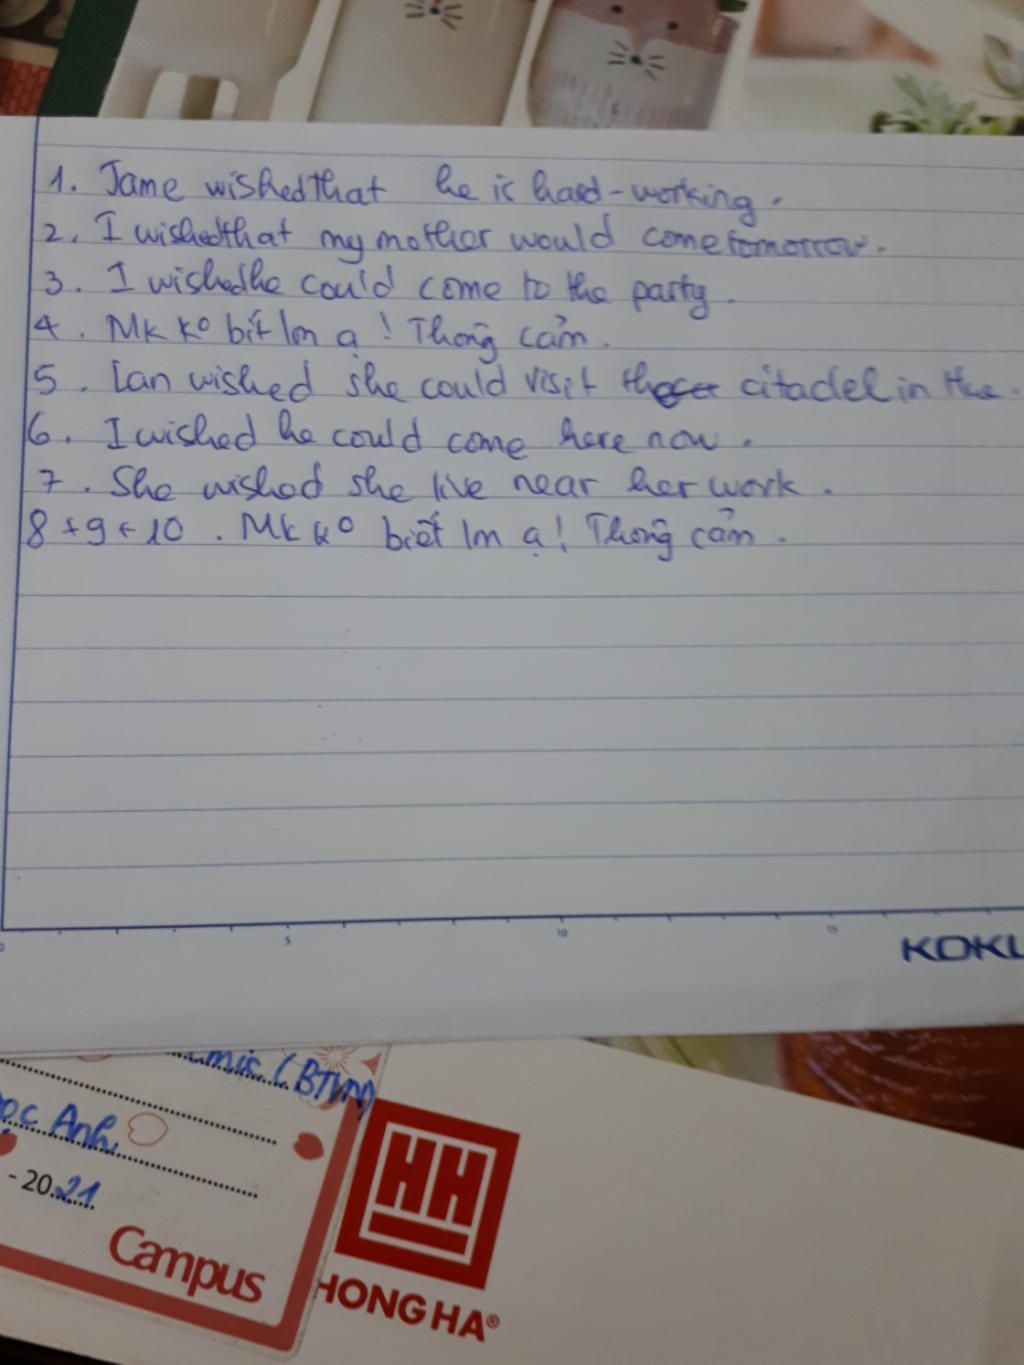 1. Jame wished that he is hard-working.
2. I wished that my mother would come tomorrow.
3. I wished he could come to the party.
4. Mk ko bít lm ạ! Thông cảm.
5. Lan wished she could visit the citadel in the.
6. I wished he could come here now.
7. She wished she live near her work.
8 + 9 + 10. Mk ko biết lm ạ! Thông cảm.
5 10 15
KOKU
(BTVN)
Anh
- 2021
Campus
HH
HONG HA®